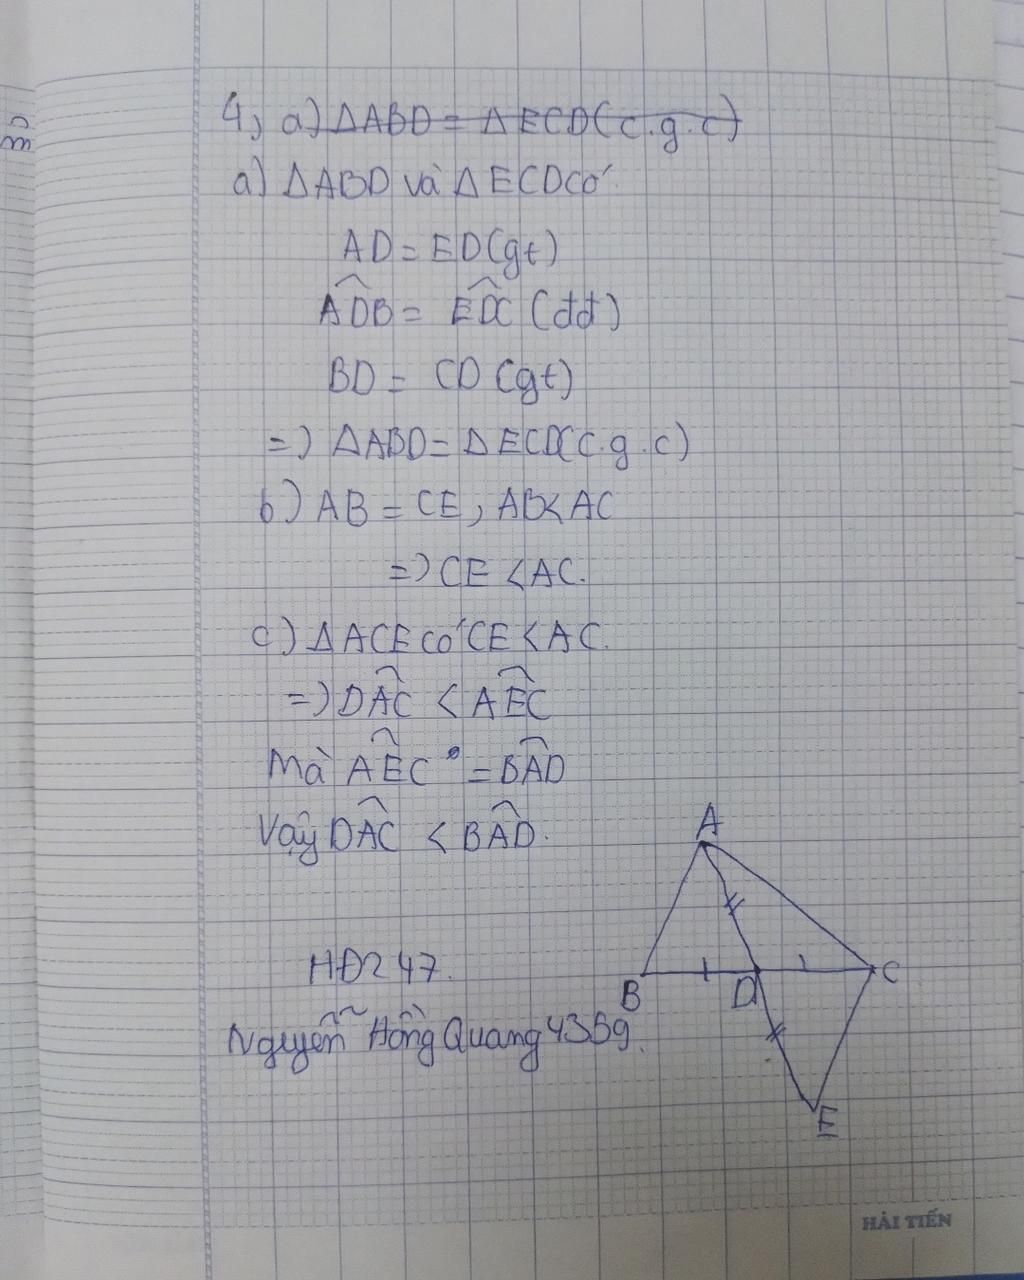 4, a) ΔABD = ΔECD (c.g.c)
a) ΔABD và ΔECD có
AD = ED (gt)
ADB = EDC (đđ)
BD = CD (gt)
=) ΔABD = ΔECD (c.g.c)
b) AB = CE, AB < AC
=) CE < AC.
c) ΔACE có CE < AC.
=) DAC < AEC
Mà AEC = BAD
Vậy DAC < BAD.
A
HĐ2 47.
B
D
C
Nguyễn Hồng Quang
E
HẢI TIẾN